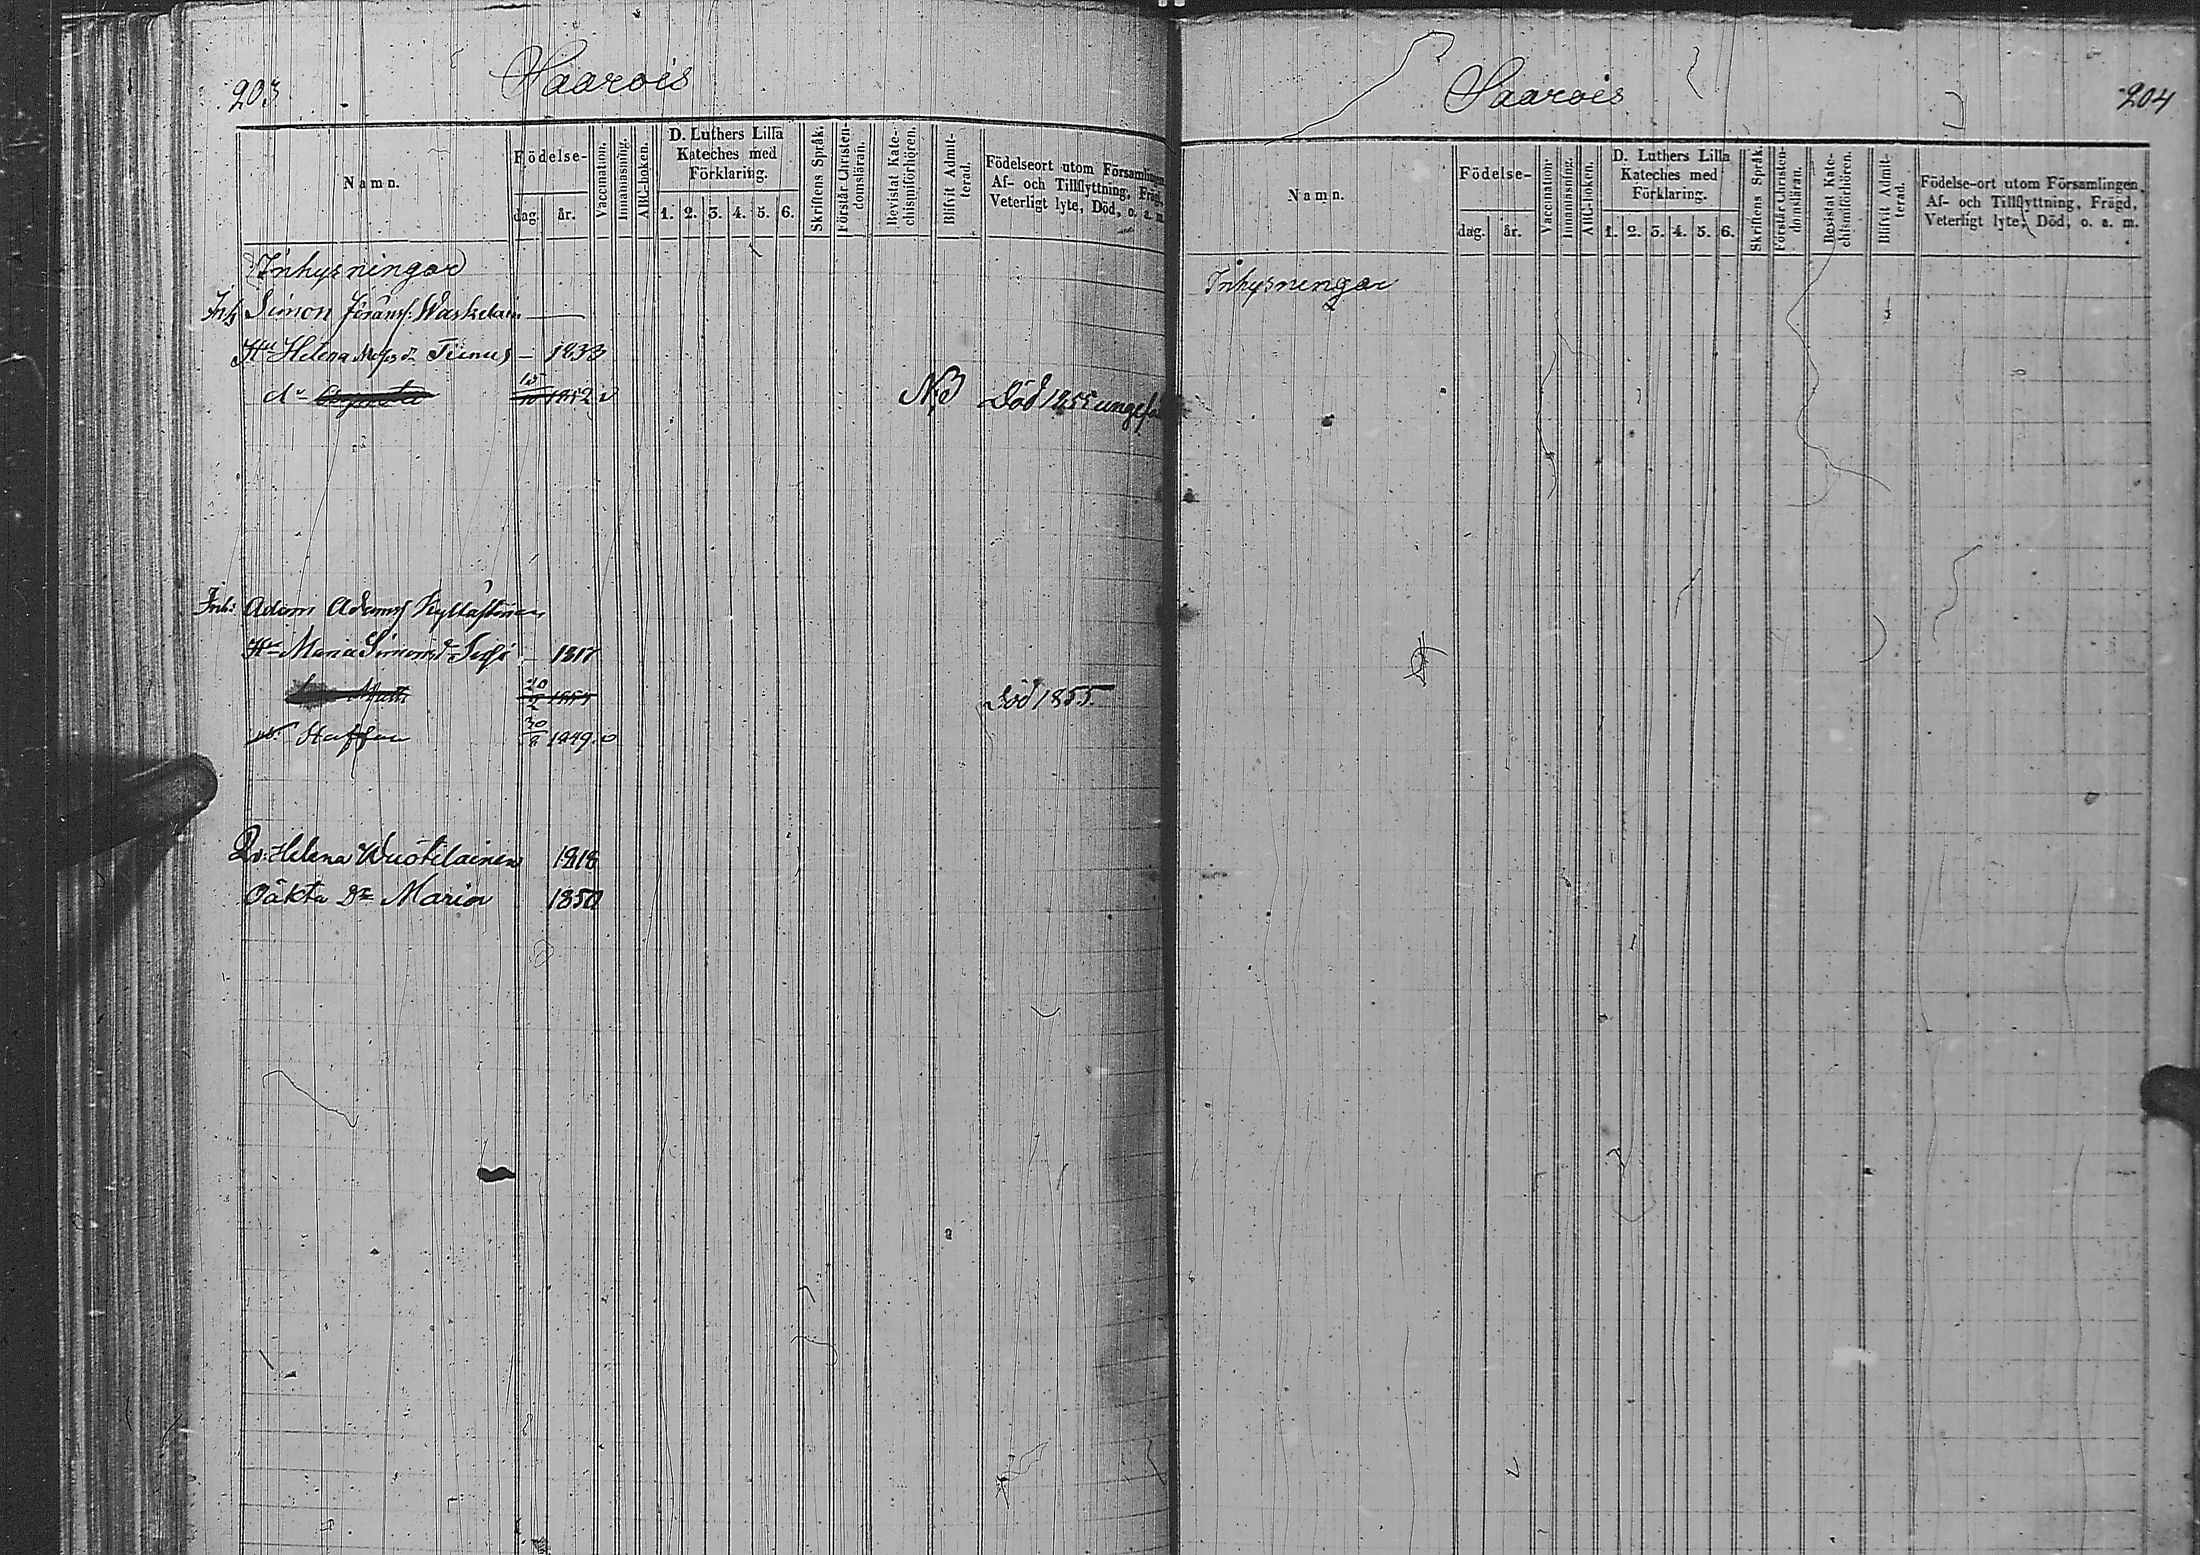 203
Saarois
Namn.
Födelse-
dag. år.
Vaccination.
Innanläsning.
ABC-boken.
D. Luthers Lilla
Kateches med
Förklaring.
1. 2. 3. 4. 5. 6.
Skriftens Språk.
Förstår Christen-
domsläran.
Bevistat Kate-
chismiförhören.
Blifvit Admit-
terad.
Födelseort utom Församlingen,
Af- och Tillflyttning, Frägd,
Veterligt lyte, Död, o. a. m.
Inhysningar
Inh Simon Göransf: Waskelain
Hu Helena Tiinus – 1833
dr 15/10 1852 v NB Död 1855
Inh: Adam Adamsf
Hu Maria Simonsd 1817
20 Död 1855.
Staffan 30/8 1849. v
Q: Helena Wuotilainen 1818
Oäkta Dr Maria 1850
Saarois
204
Namn.
Födelse-
dag. år.
Vaccination.
Innanläsning.
ABC-boken.
D. Luthers Lilla
Kateches med
Förklaring.
1. 2. 3. 4. 5. 6.
Skriftens Språk.
Förstår Christen-
domsläran.
Bevistat Kate-
chismiförhören.
Blifvit Admit-
terad.
Födelse-ort utom Församlingen,
Af- och Tillflyttning, Frägd,
Veterligt lyte, Död, o. a. m.
Inhysningar